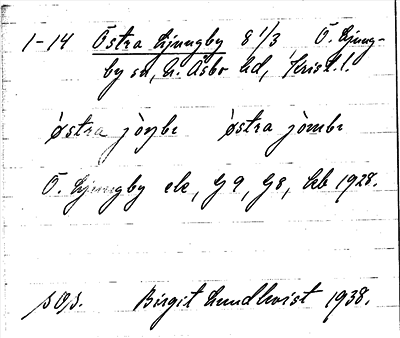 1-14 Östra Ljungby 8 1/3 Ö. Ljung-
by sn, N. Åsbo hd, Krist. l.
`østra jòŋbε `østra jòmbε
Ö. Ljungby ek, G9, G8, hb 1928.
sOs. Birgit Lundkvist 1938.